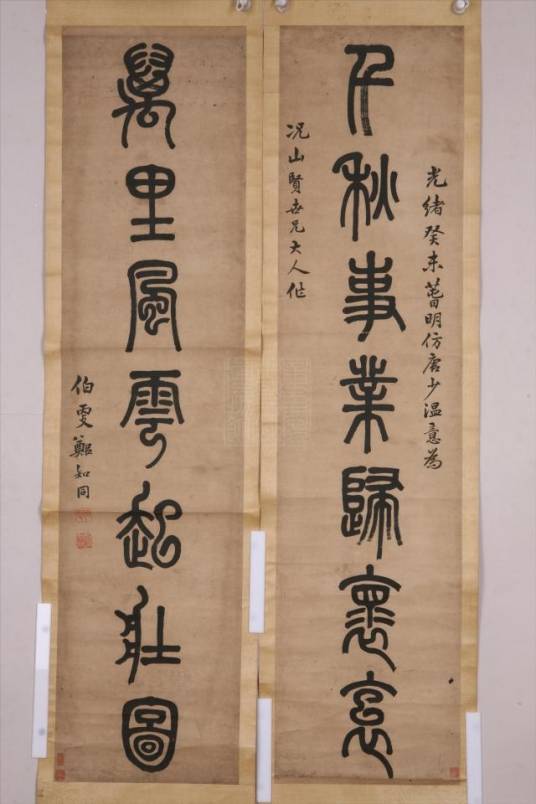 光緒癸未萅明仿唐少温意為
千秋事業歸褱袌
況山賢世兄大人作
萬里風雲起壯圖
伯更鄭知同